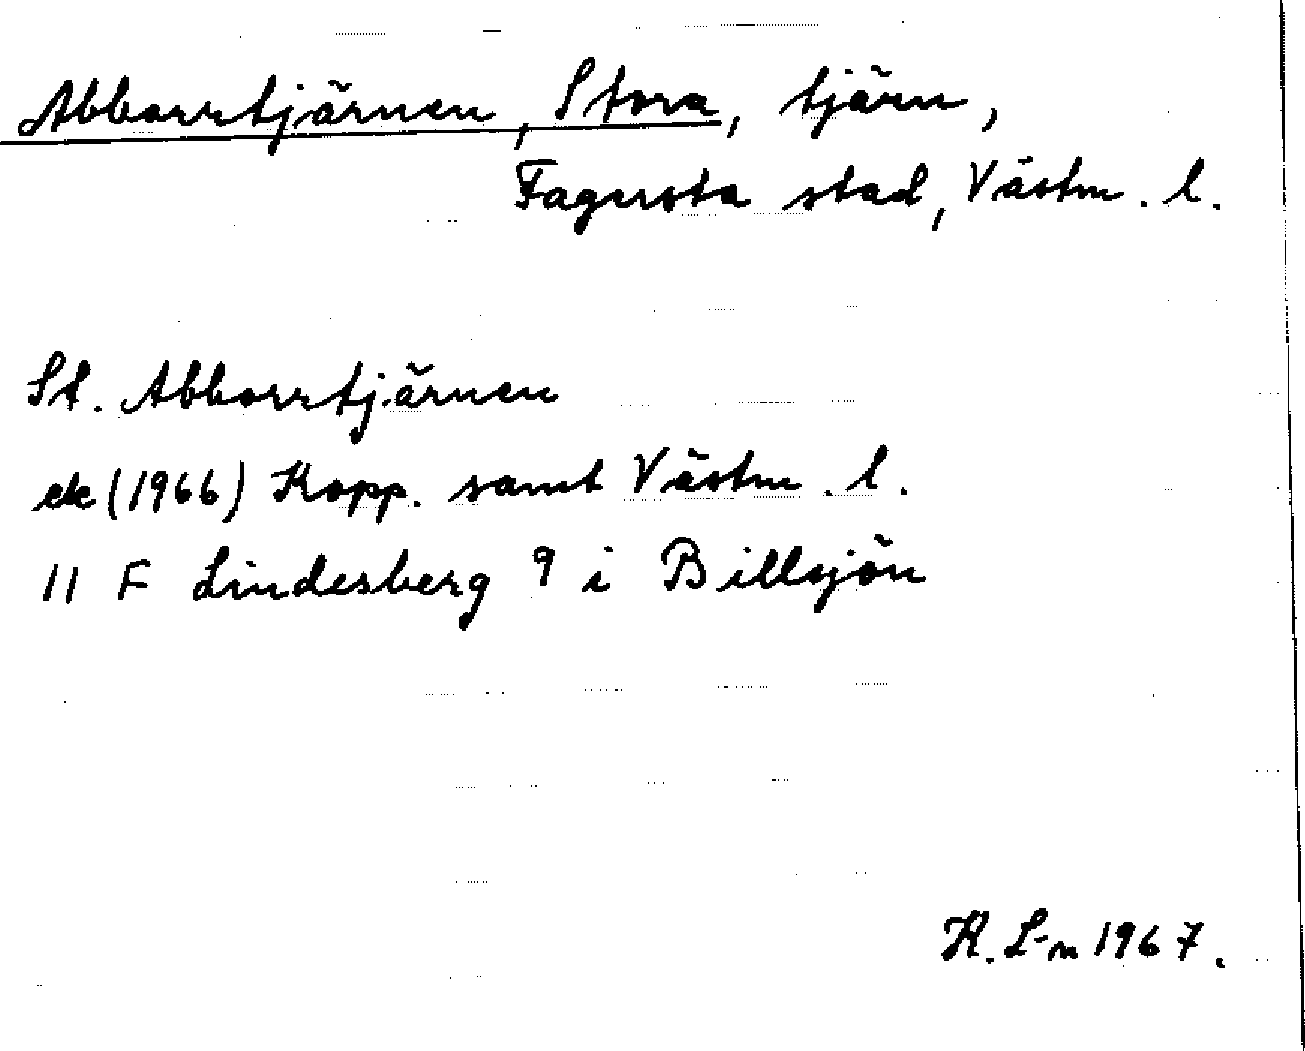 Abborrtjärnen, Stora, tjärn,
Fagersta stad, Västm. l.
St. Abborrtjärnen
ek (1966) Kopp. samt Västm. l.
11 F Lindesberg 9 i Billsjön
H. L-n 1967.